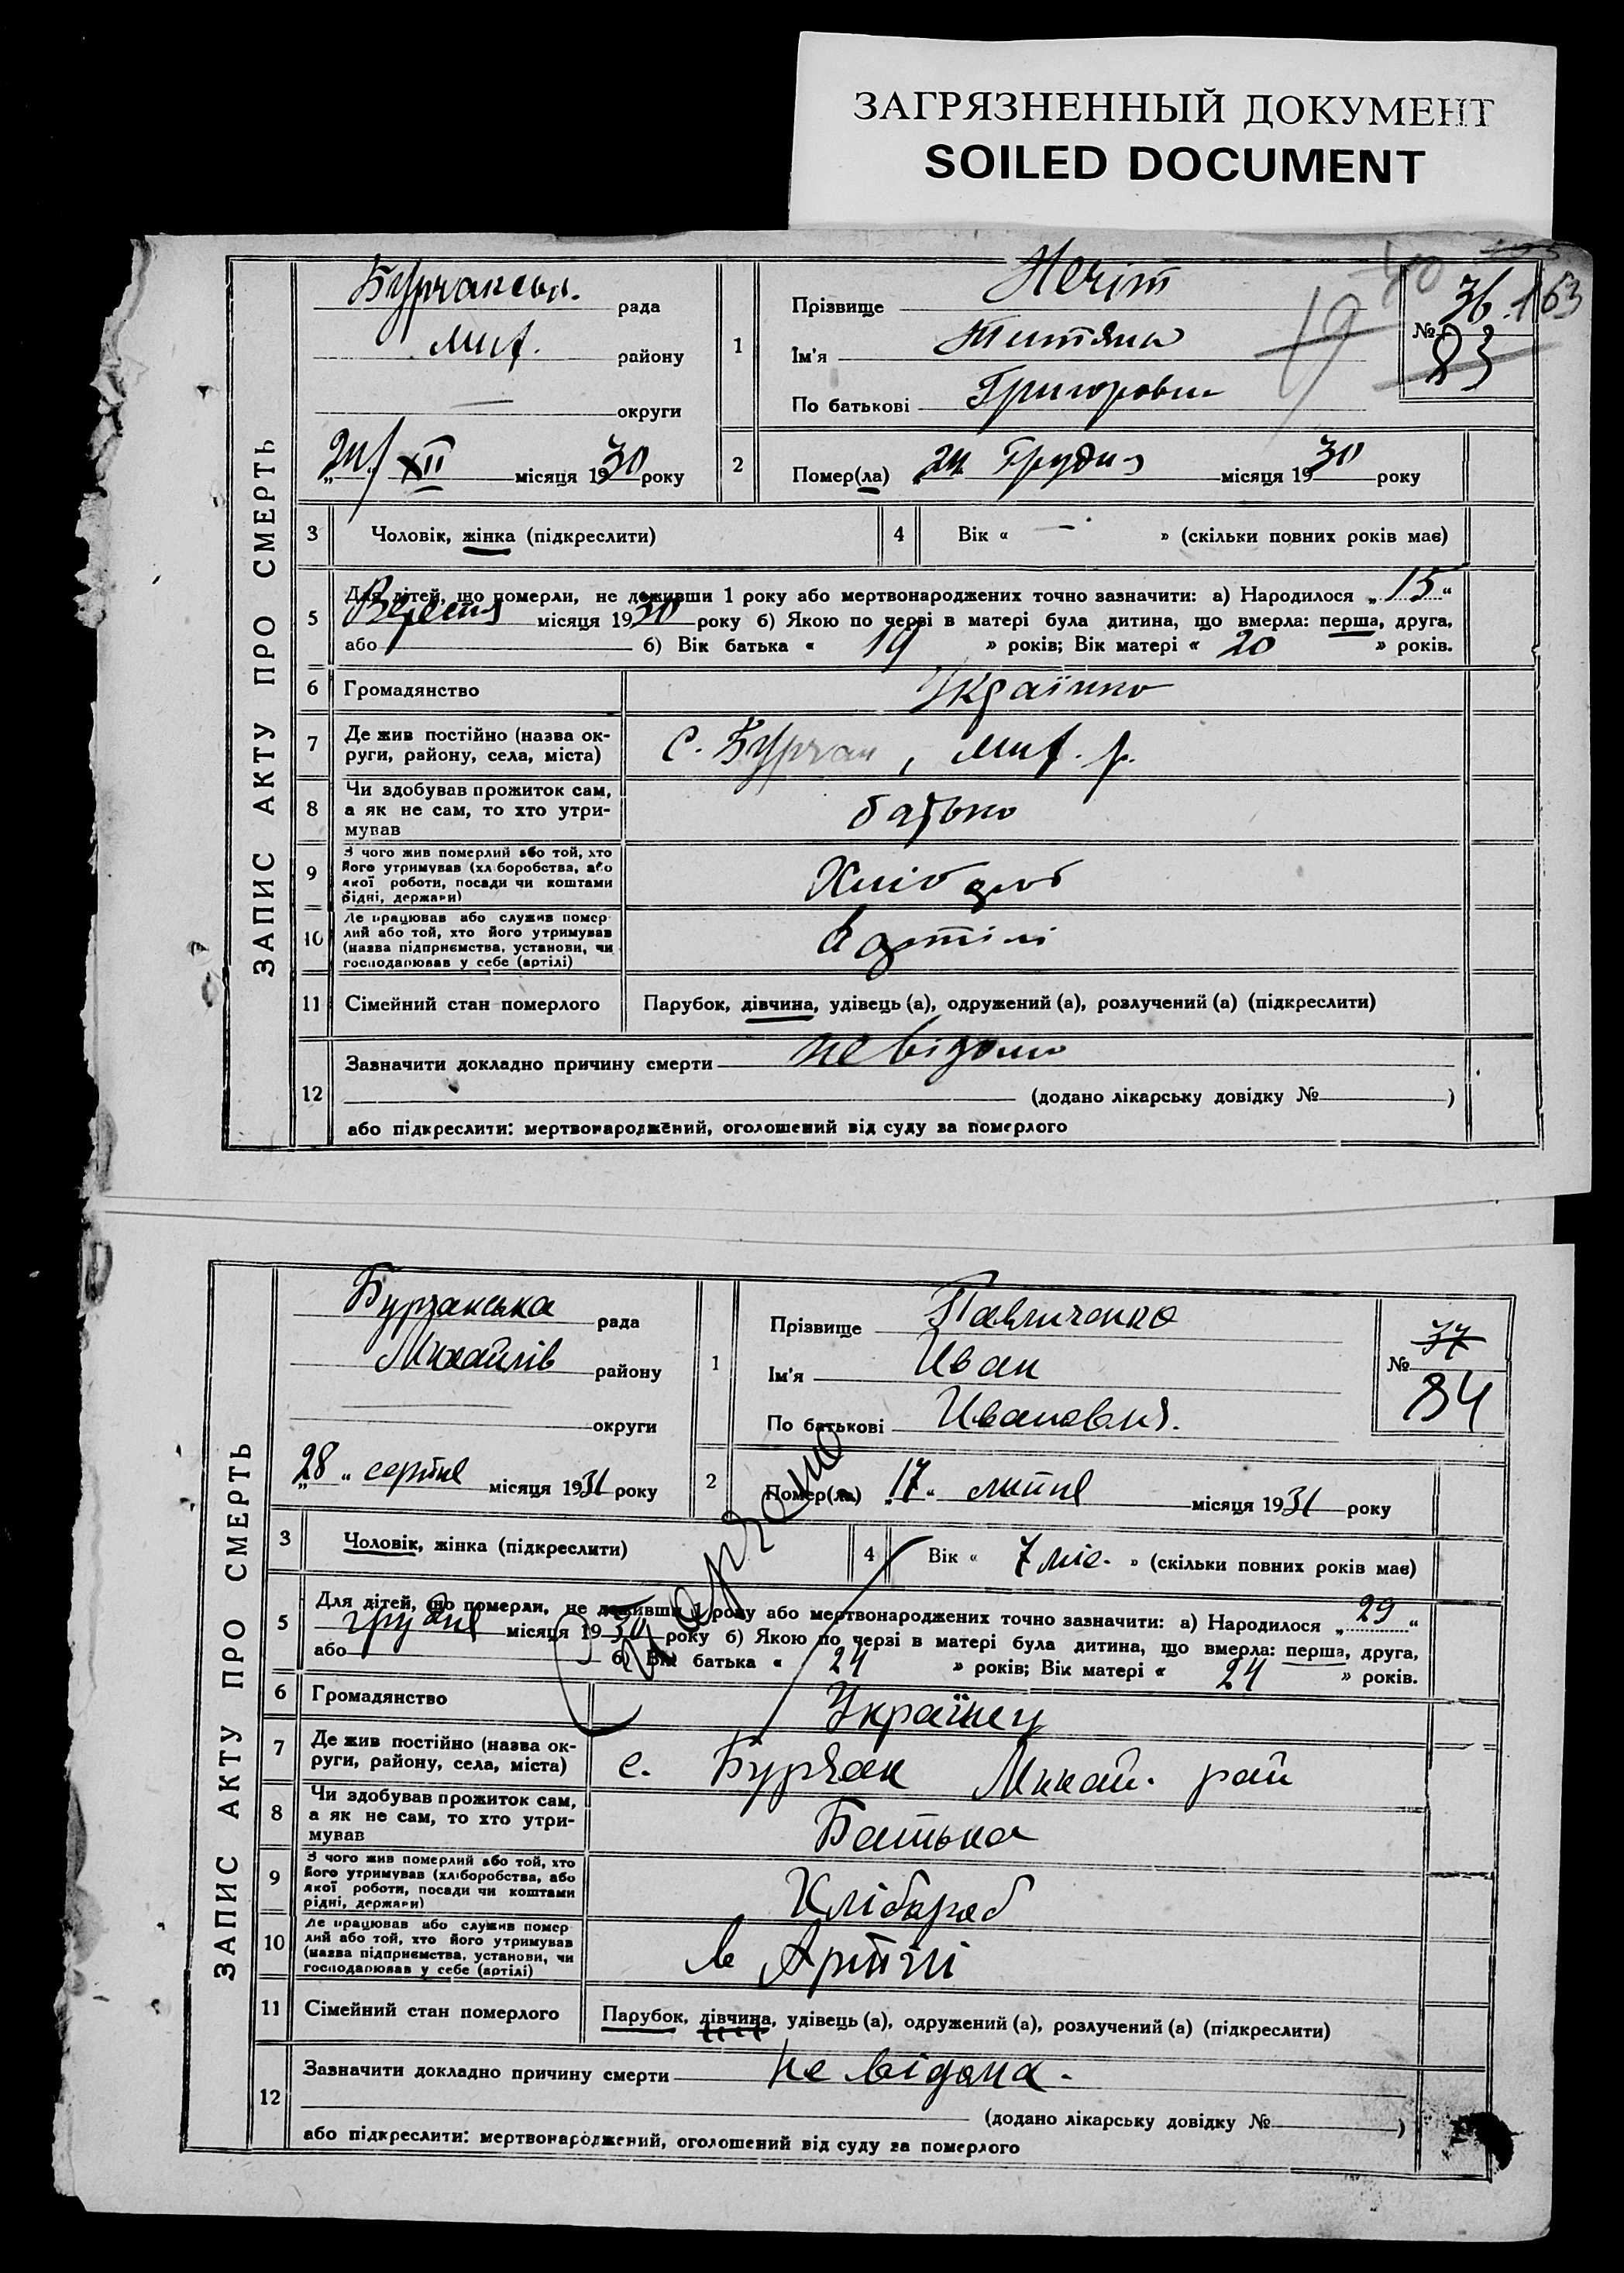 ЗАГРЯЗНЕННЫЙ ДОКУМЕНТ
SOILED DOCUMENT
ЗАПИС АКТУ ПРО СМЕРТЬ
рада
района
району
округи
24 XII місяця 1930 року
1
Прізвище Нечіт
Ім'я Титяна
По батькові
№ 36 163
83
2
Помер(ла) 24 Грудня місяця 1930 року
3 Чоловік, жінка (підкреслити)
4 Вік « — » (скільки повних років має)
5 Для дітей, що померли, не доживши 1 року або мертвонароджених точно зазначити: а) Народилося „ 15 “
Вересня місяця 1930 року б) Якою по черзі в матері була дитина, що вмерла: перша, друга,
або б) Вік батька « 19 » років; Вік матері « 20 » років.
6 Громадянство Українка
7 Де жив постійно (назва ок-
руги, району, села, міста) с. Бурчак, мих. р.
8 Чи здобував прожиток сам,
а як не сам, то хто утри-
мував батько
9 З чого жив померлий або той, хто
його утримував (хліборобства, або
якої роботи, посади чи коштами
рідні, держави) Хлібороб
10 Де працював або служив помер-
лий або той, хто його утримував
(назва підприємства, установи, чи
господарював у себе (артілі) в артілі
11 Сімейний стан померлого Парубок, дівчина, удівець (а), одружений (а), розлучений (а) (підкреслити)
12 Зазначити докладно причину смерти не відомо
(додано лікарську довідку № )
або підкреслити: мертвонароджений, оголошений від суду за померлого
ЗАПИС АКТУ ПРО СМЕРТЬ
Бурчанська рада
Михайлів району
округи
„28“ серпня місяця 1931 року
1
Прізвище Павличенко
Ім'я Иван
По батькові Ивановия.
№ 37
84
2
Помер(ла) „17“ липня місяця 1931 року
3 Чоловік, жінка (підкреслити)
4 Вік « 7 міс. » (скільки повних років має)
5 Для дітей, що померли, не доживши 1 року або мертвонароджених точно зазначити: а) Народилося „ 29 “
грудня місяця 1930 року б) Якою по черзі в матері була дитина, що вмерла: перша, друга,
або б) Вік батька « 24 » років; Вік матері « 24 » років.
6 Громадянство Українец
7 Де жив постійно (назва ок-
руги, району, села, міста) с. Бурчак Михай. рай
8 Чи здобував прожиток сам,
а як не сам, то хто утри-
мував Батька
9 З чого жив померлий або той, хто
його утримував (хліборобства, або
якої роботи, посади чи коштами
рідні, держави) Хлібороб
10 Де працював або служив помер-
лий або той, хто його утримував
(назва підприємства, установи, чи
господарював у себе (артілі) в Артілі
11 Сімейний стан померлого Парубок, дівчина, удівець (а), одружений (а), розлучений (а) (підкреслити)
12 Зазначити докладно причину смерти не відома.
(додано лікарську довідку № )
або підкреслити: мертвонароджений, оголошений від суду за померлого